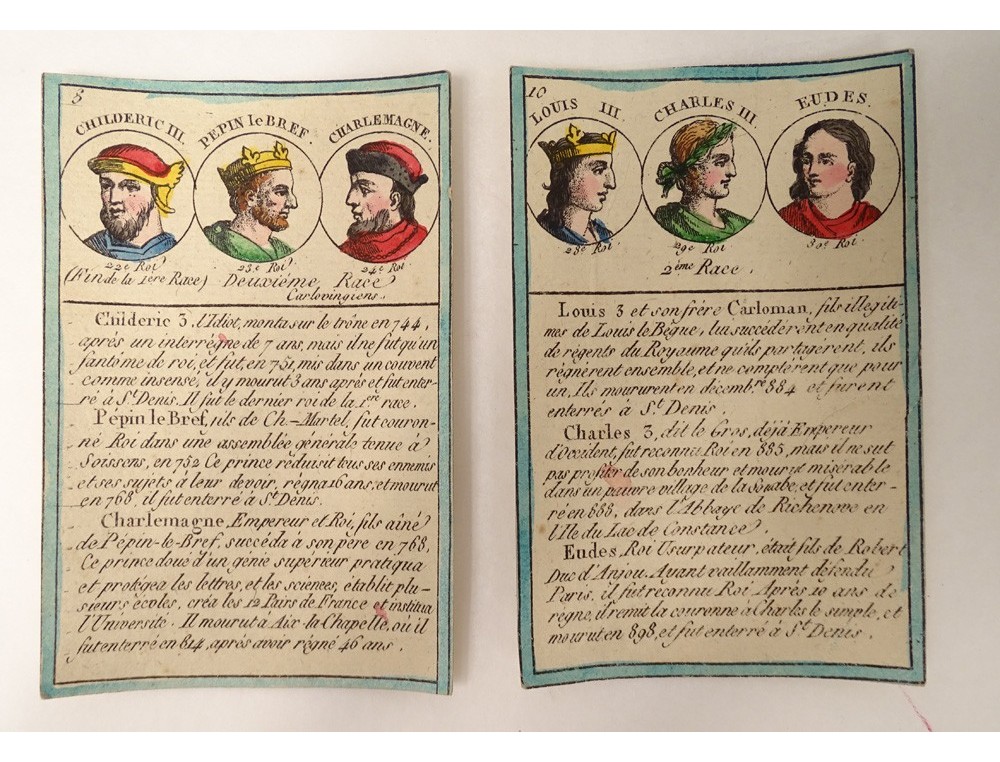 8
CHILDERIC III. PEPIN le BREF. CHARLEMAGNE.
22e Roi 23e Roi 24e Roi
(Fin de la 1ere Race) Deuxiéme Race
Carlovingiens.
Childeric 3, l'Idiot, monta sur le trône en 744,
après un interrégne de 7 ans, mais il ne fut qu'un
fantôme de roi, et fut, en 751, mis dans un couvent
comme insensé, il y mourut 3 ans après et fut enter-
ré à St. Denis. Il fut le dernier roi de la 1ere race.
Pépin le Bref, fils de Ch.-Martel, fut couron-
né Roi dans une assemblée générale tenue à
Soissons, en 752 Ce prince réduisit tous ses ennemis
et ses sujets à leur devoir, régna 16 ans, et mourut
en 768, il fut enterré à St. Denis.
Charlemagne, Empereur et Roi, fils aîné
de Pépin-le-Bref, succéda à son père en 768,
Ce prince doué d'un génie supérieur pratiqua
et protégea les lettres, et les sciences, établit plu-
sieurs écoles, créa les 12 Pairs de France et institua
l'Université. Il mourut à Aix-la-Chapelle, où il
fut enterré en 814, après avoir régné 46 ans.
10
LOUIS III. CHARLES III. EUDES.
28e Roi 29e Roi. 30e Roi.
2ème Race.
Louis 3 et son frère Carloman, fils illegiti-
mes de Louis le Bègue, lui succédérent en qualité
de régents du Royaume qu'ils partagérent, ils
régnèrent ensemble, et ne complérent que pour
un. Ils moururent en décembre 884 et furent
enterrés à St. Denis.
Charles 3, dit le Gros, déjà Empereur
d'Occident, fut reconnu Roi en 885, mais il ne sut
pas profiter de son bonheur et mourut misérable
dans un pauvre village de la Souabe, et fut enter-
ré en 888, dans l'Abbaye de Richenove en
l'Ile du Lac de Constance.
Eudes, Roi Usurpateur, était fils de Robert
Duc d'Anjou. Ayant vaillamment défendu
Paris, il fut reconnu Roi. Après 10 ans de
règne, il remit la couronne à Charles le simple, et
mourut en 898, et fut enterré à St. Denis.